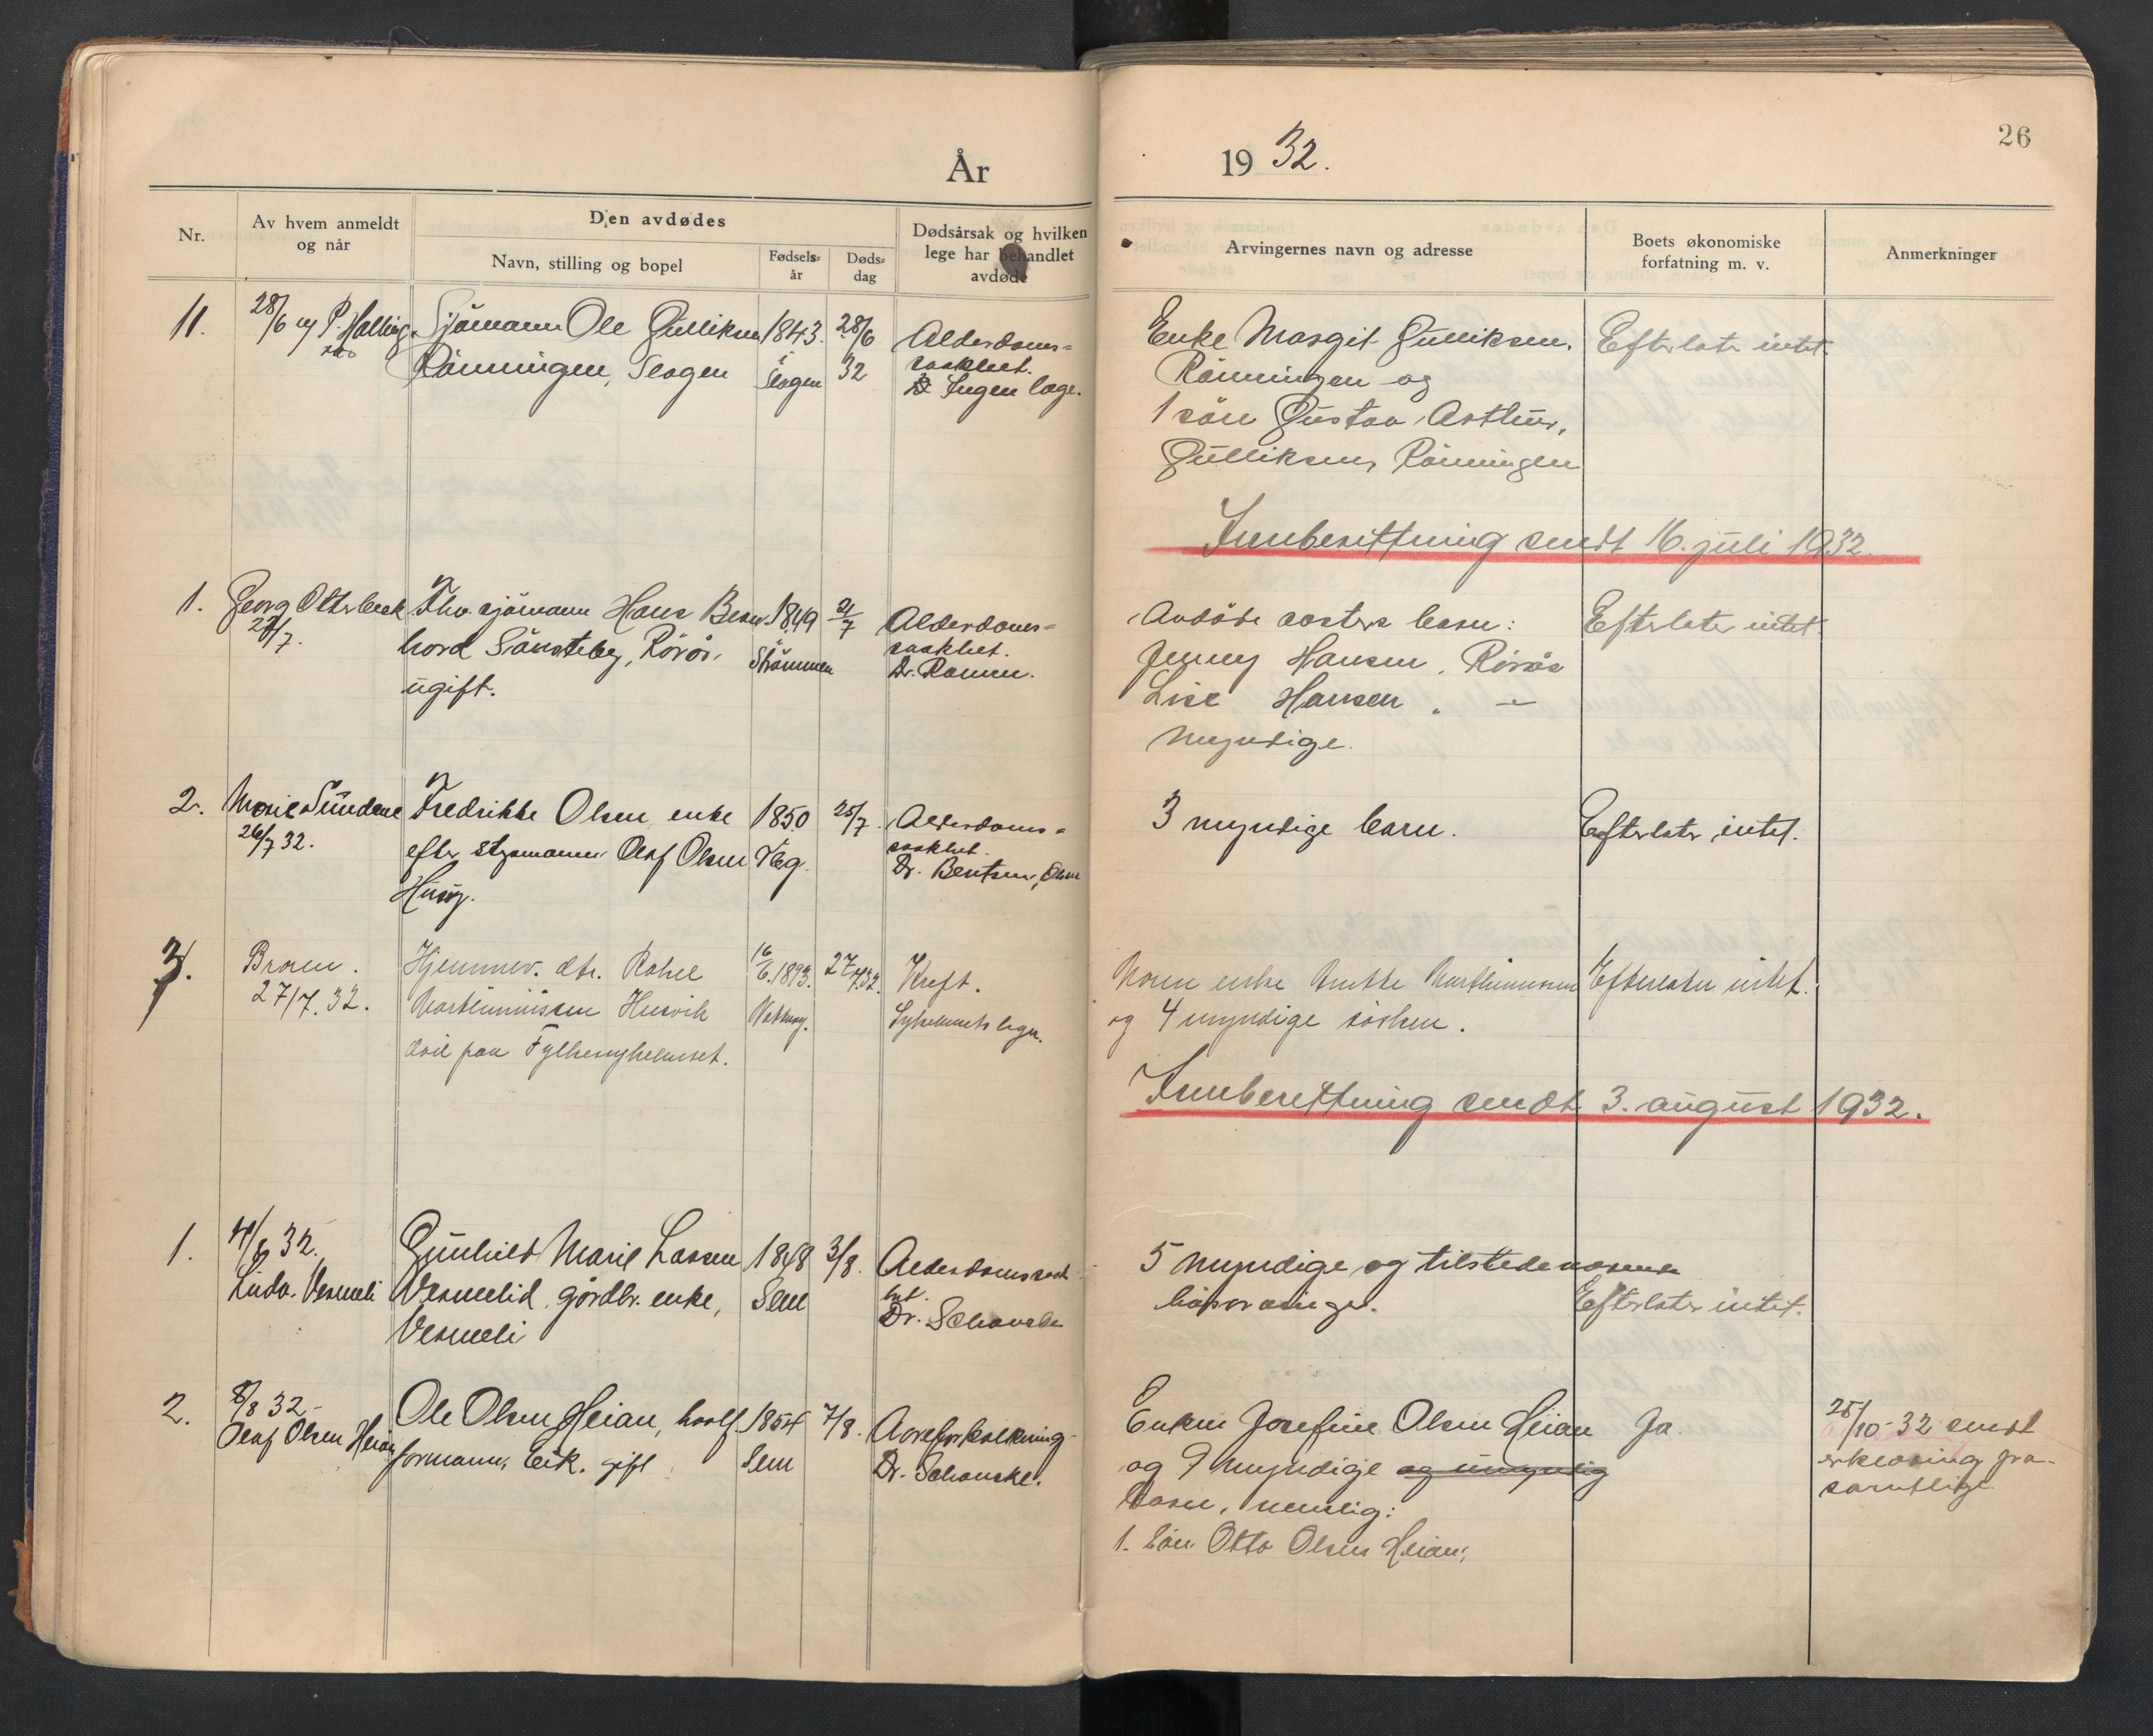 År 1932.
26
Nr.
Av hvem anmeldt
og når
Den avdødes
Navn, stilling og bopel
Fødsels-
år
Døds-
dag
Dødsårsak og hvilken
lege har behandlet
avdøde
Arvingernes navn og adresse
Boets økonomiske
forfatning m. v.
Anmerkninger
11.
28/6 P. Halling
Sjömann Ole Gulliksen
Rönningen, Slagen
1843.
i
Slagen
28/6
32
Alderdoms-
svakhet.
Ingen læge.
Enke Margit Gulliksen.
Rönningen og
1 sön Gustav Arthur,
Gulliksen, Rönningen
Efterlater intet.
Innberettning sendt 16. juli 1932.
1.
Georg Otterbeck
Fhv. sjömann Hans Bern-
hard Sönsteby, Rörås.
ugift.
1849
Strömmen
21/7
Alderdoms-
svakhet.
Dr.
Avdöde søsters barn:
Jenny Hansen, Röraas
Lise Hansen, -"-
Myndige.
Efterlater intet.
2.
Marie Sundene
26/7 32.
Fredrikke Olsen, enke
efter styrmann Olaf Olsen
Husøy.
1850
Tbg.
25/7.
Alderdoms-
svakhet.
Dr. Bentsen,
3 myndige barn.
Efterlater intet.
3.
Broren.
27/7.32.
Hjemmev. dtr. Rakel
Marthiniussen Husvik
død paa Fylkessykehuset.
16/6.1893.
27/7.32.
Kreft.
Sykehusets leger.
Moren enke Marthiniussen
og 4 myndige søsken.
Efterlater intet.
Innberettning sendt 3. august 1932.
1.
4/8 32.
Ludv. Vesmeli
Gunhild Marie Larsen
Vesmelid, gårdbr. enke,
Vesmeli
1848
Sem
3/8.
Alderdomssvak-
het.
Dr. Schanche
5 myndige og tilstedeværende
livsarvinger.
Efterlater intet.
2.
8/8 32-
Olaf Olsen Heian
Ole Olsen Heian, hvalf.
formann, Eik. gift
1854
Sem
7/8.
Aareforkalkning
Dr. Schanche.
Enken Josefine Olsen Heian
og 9 myndige og umyndig
barn, nemlig:
1. Sön Otto Olsen Heian,
Ja.
25/10-32 sendt
erklæring fra
samtlige